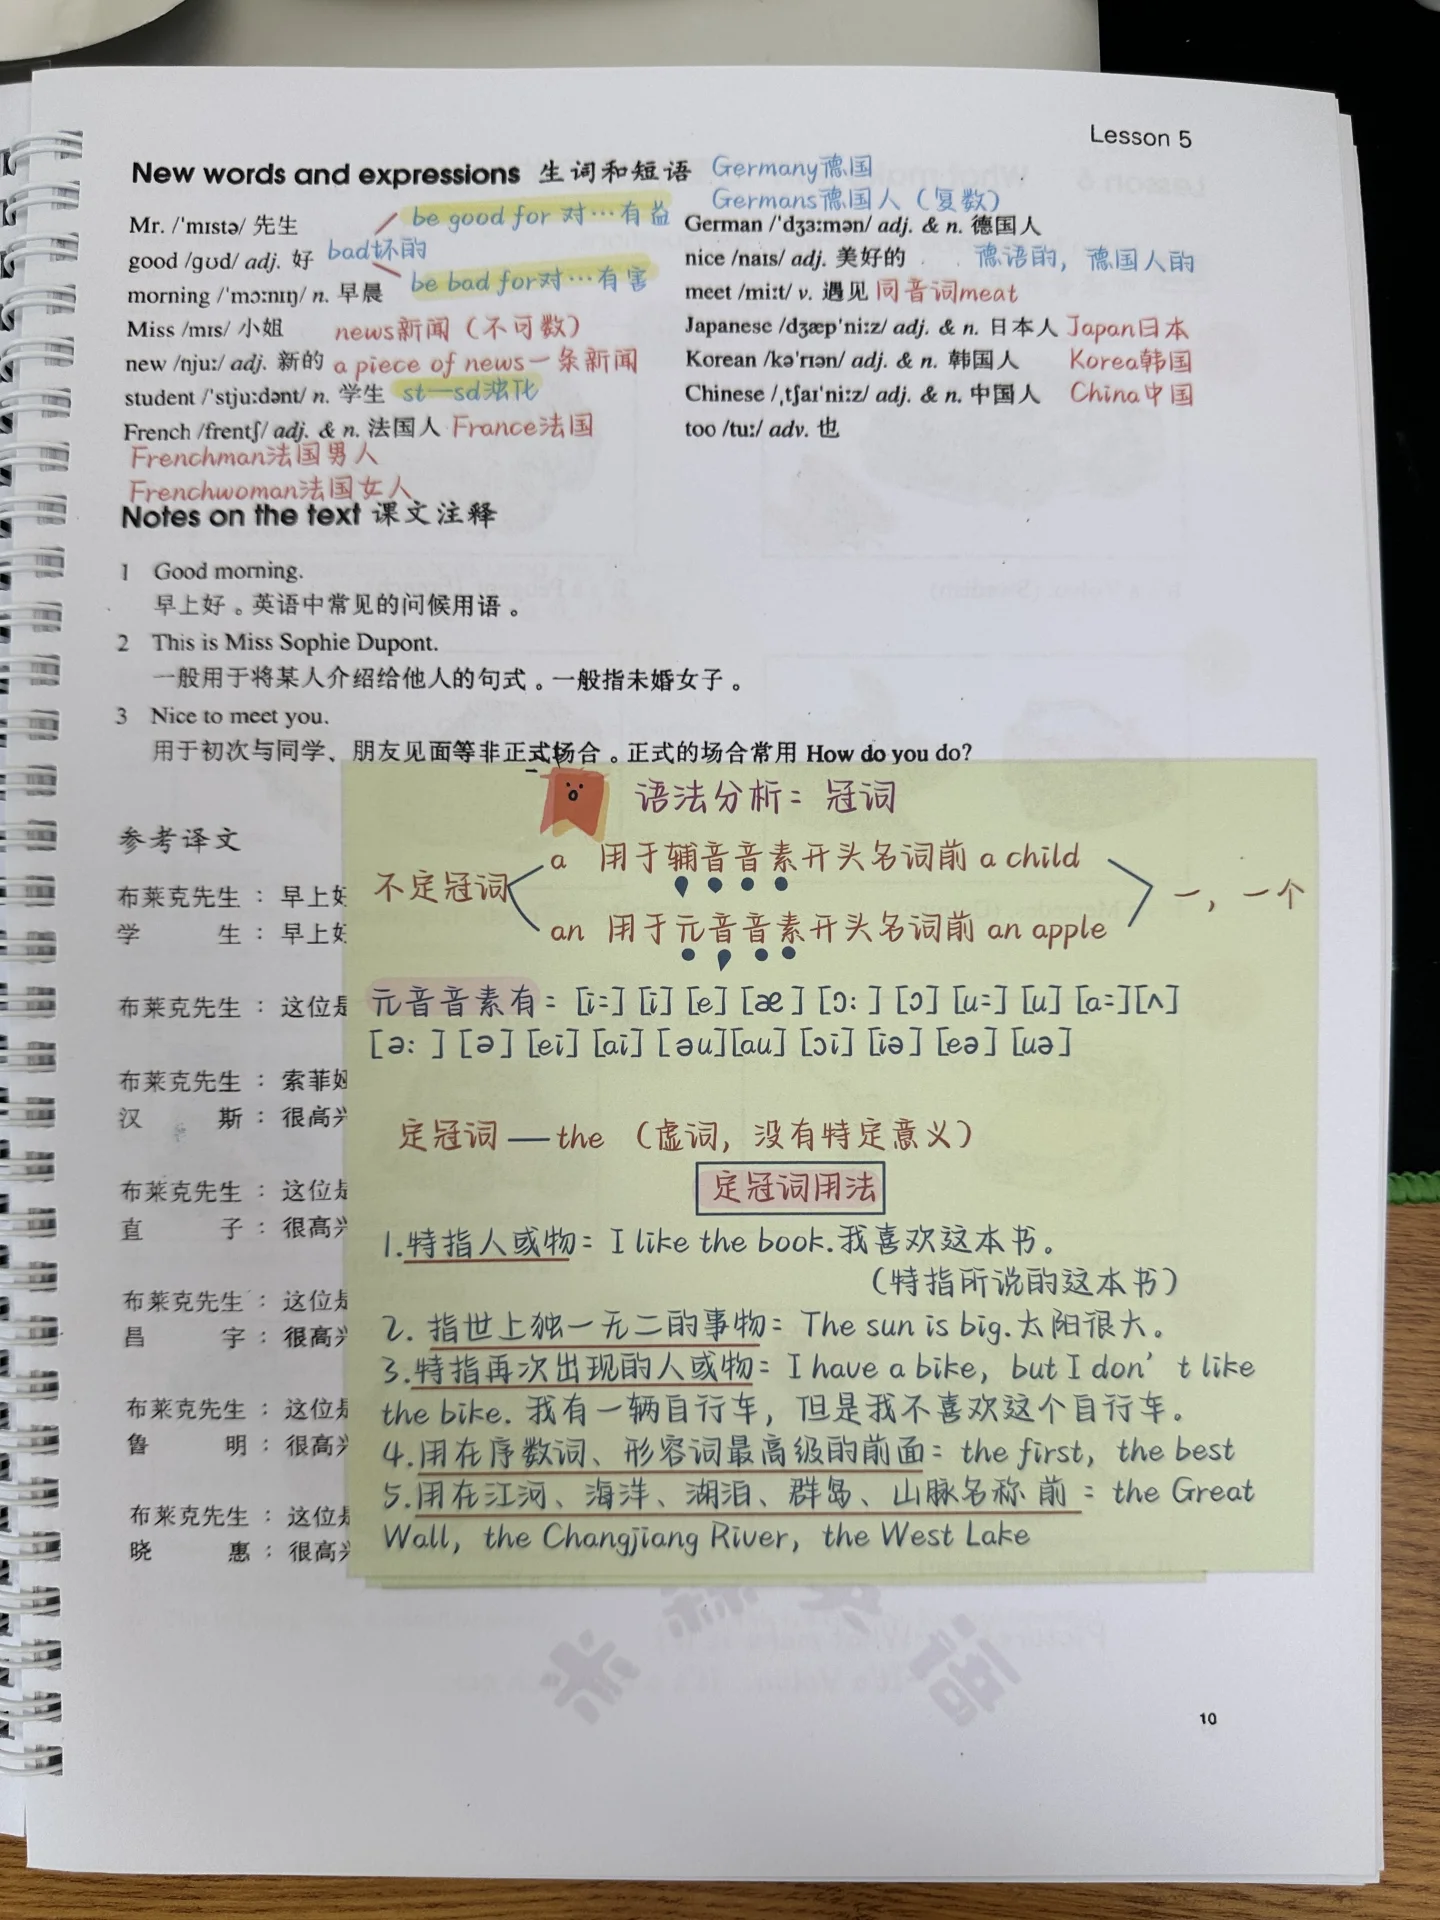 Lesson 5
New words and expressions 生词和短语
Germany德国
Germans德国人（复数）
Mr. /'mɪstə/ 先生
be good for 对…有益
good /gʊd/ adj. 好
bad坏的
be bad for对…有害
morning /'mɔ:nɪŋ/ n. 早晨
Miss /mɪs/ 小姐
news新闻（不可数）
new /nju:/ adj. 新的
a piece of news一条新闻
student /'stju:dənt/ n. 学生
st—sd浊化
French /frentʃ/ adj. & n. 法国人
France法国
Frenchman法国男人
Frenchwoman法国女人
German /'dʒɜ:mən/ adj. & n. 德国人
nice /naɪs/ adj. 美好的
德语的，德国人的
meet /mi:t/ v. 遇见
同音词meat
Japanese /dʒæp'ni:z/ adj. & n. 日本人
Japan日本
Korean /kə'rɪən/ adj. & n. 韩国人
Korea韩国
Chinese /ˌtʃaɪ'ni:z/ adj. & n. 中国人
China中国
too /tu:/ adv. 也
Notes on the text 课文注释
1 Good morning.
早上好。英语中常见的问候用语。
2 This is Miss Sophie Dupont.
一般用于将某人介绍给他人的句式。一般指未婚女子。
3 Nice to meet you.
用于初次与同学、朋友见面等非正式场合。正式的场合常用 How do you do?
参考译文
布莱克先生：早上好
学 生：早上好
布莱克先生：这位是
布莱克先生：索菲娅
汉 斯：很高兴
布莱克先生：这位是
直 子：很高兴
布莱克先生：这位是
昌 宇：很高兴
布莱克先生：这位是
鲁 明：很高兴
布莱克先生：这位是
晓 惠：很高兴
语法分析：冠词
不定冠词
a 用于辅音音素开头名词前 a child
an 用于元音音素开头名词前 an apple
一，一个
元音音素有：[i:] [i] [e] [æ] [ɔ:] [ɔ] [u:] [u] [a:][ʌ]
[ə:] [ə] [ei] [ai] [əu][au] [ɔi] [iə] [eə] [uə]
定冠词——the（虚词，没有特定意义）
定冠词用法
1.特指人或物：I like the book.我喜欢这本书。
（特指所说的这本书）
2. 指世上独一无二的事物：The sun is big.太阳很大。
3.特指再次出现的人或物：I have a bike, but I don't like
the bike. 我有一辆自行车，但是我不喜欢这个自行车。
4.用在序数词、形容词最高级的前面：the first, the best
5.用在江河、海洋、湖泊、群岛、山脉名称 前：the Great
Wall, the Changjiang River, the West Lake
10